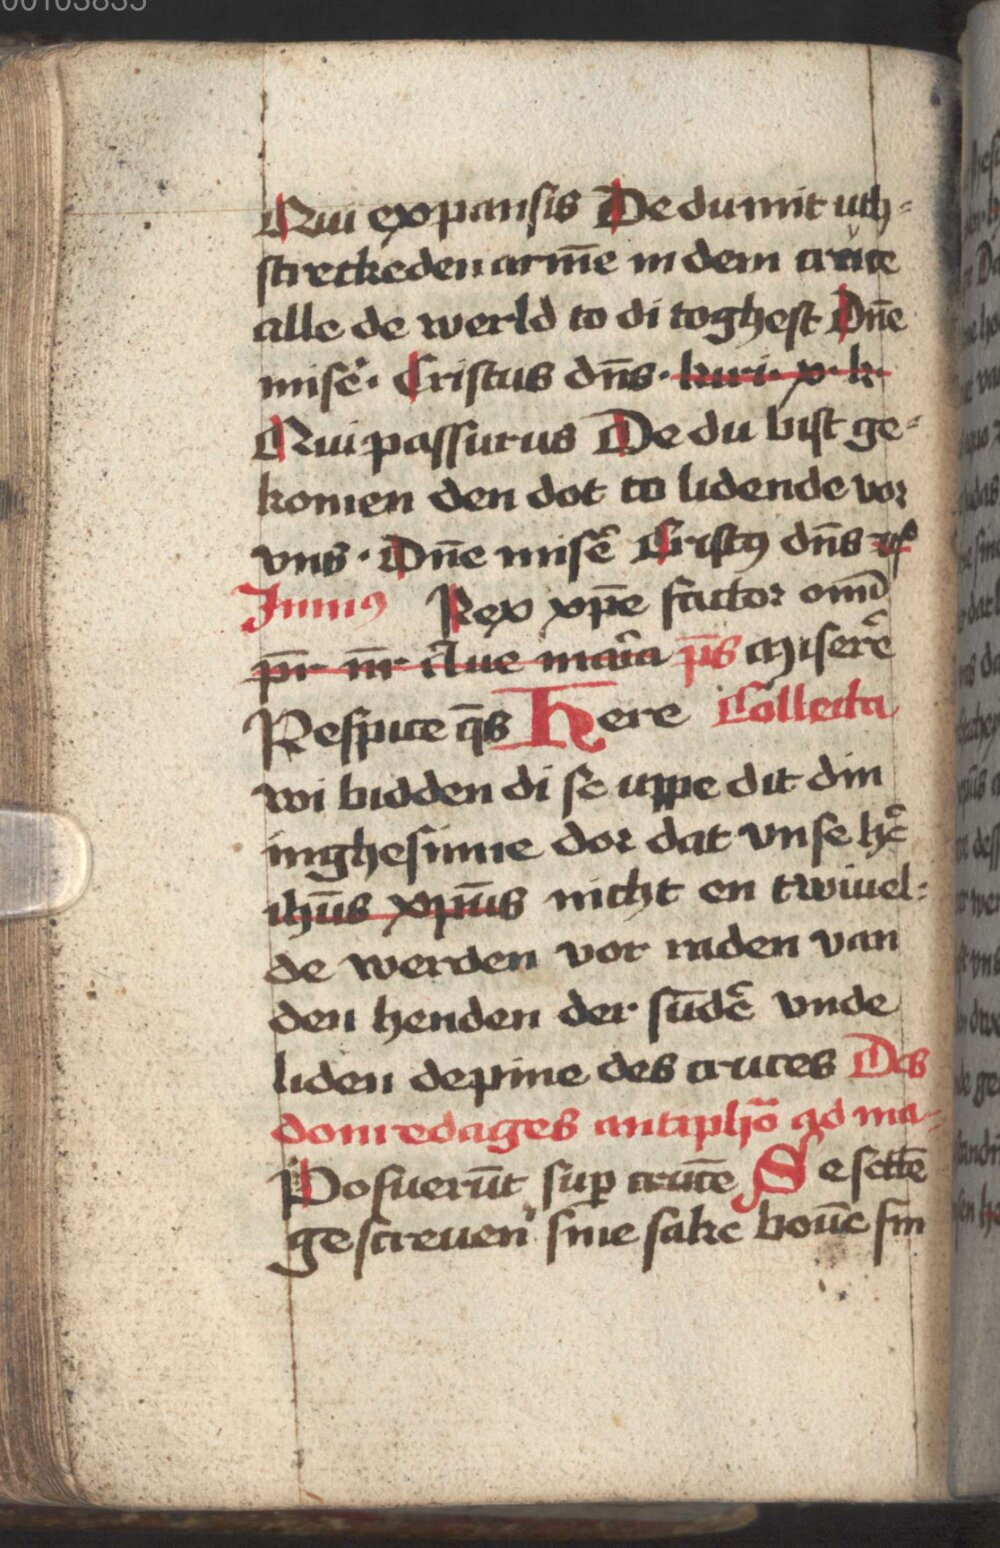 00103835
Qui expansis De du mit uth⸗
streckeden arm̄e in dem cruce
alle de werld to di toghest Dn̄e
miser̄. Cristus dn̄s. kiri. x. k.
Qui passurus De du bist ge⸗
komen den dot to lidende vor
vns. Dn̄e miser̄ Cristꝰ dn̄s
Imnꝰ Rex xp̄e factor om̄
pr̄ nr̄ Aue mar̄ia p̄s Miserē
Respice q̄s Here Collecta
wi bidden di se uppe dit din
inghesinne dor dat vnse hē
ihūs xpūs nicht en twiuel⸗
de werden vor raden van
den henden der sūdē vnde
liden de pine des cruces Des
donredages antiphō ad ma⸗
Posuerūt suꝑ crucē Se settē
gescreuen sine sake bouē sin